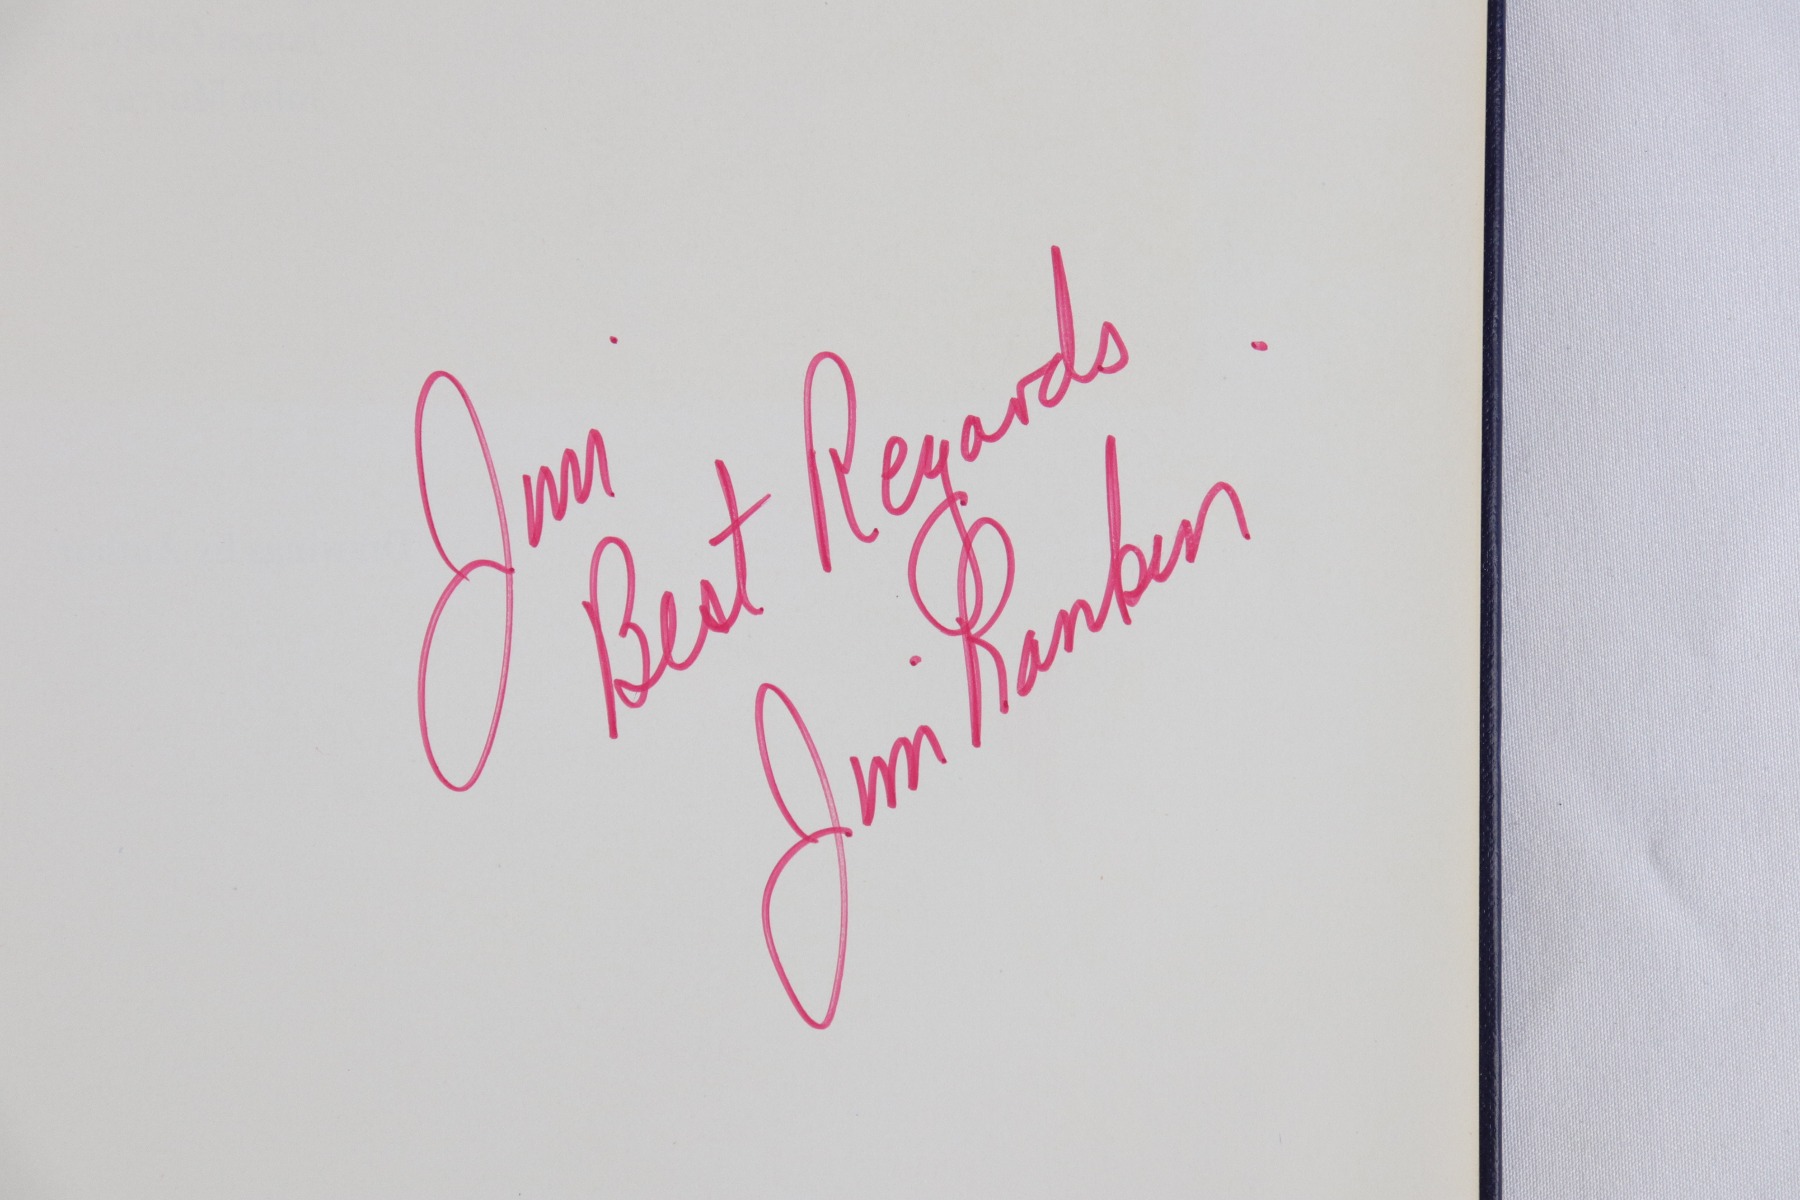 Jim
Best Regards
Jim Rankin